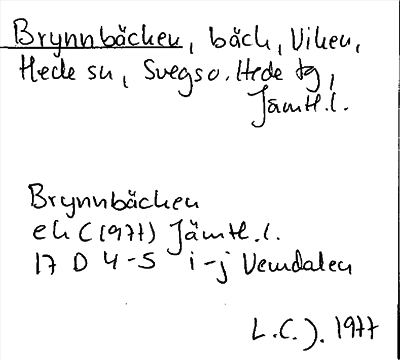 Brynnbäcken, bäck, Viken,
Hede sn, Svegs o. Hede tg,
Jämtl.l.
Brynnbäcken
ek C (1977) Jämtl.l.
17 D 4-5 i-j Vemdalen
L.C.J. 1977